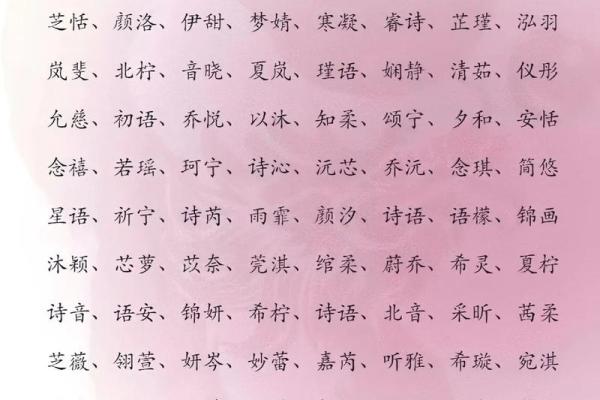 芝恬、颜洛、伊甜、梦婧、寒凝、睿诗、芷瑾、泓羽
岚斐、北柠、音晓、夏岚、瑾语、娴静、清茹、仪彤
允慈、初语、乔悦、以沐、知柔、颂宁、夕和、安恬
念禧、若瑶、珂宁、诗沁、沅芯、乔沅、念琪、简悠
星语、祈宁、诗芮、雨霏、颜汐、诗语、语檬、锦画
沐颖、芯萝、苡奈、莞淇、绾柔、蔚乔、希灵、夏柠
诗音、语安、锦妍、希柠、诗语、北音、采昕、茜柔
芝薇、翎萱、妍岑、妙蕾、嘉芮、听雅、希璇、宛淇